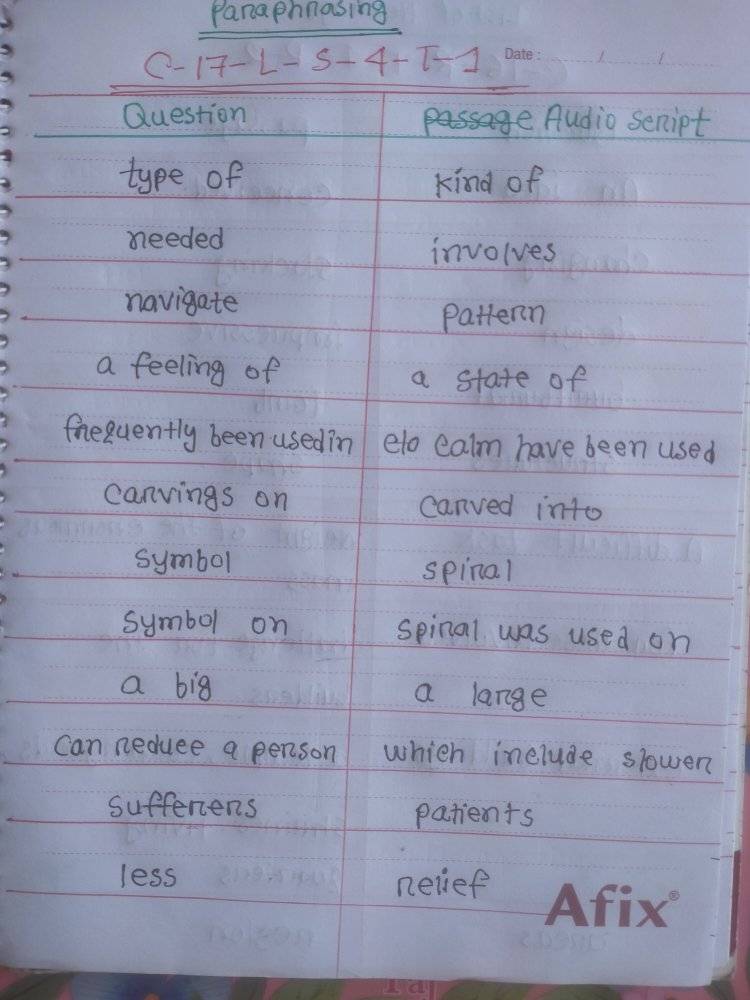 Paraphrasing
C-17-L-S-4-T-1 Date: / /
Question passage Audio script
type of kind of
needed involves
navigate pattern
a feeling of a state of
frequently been used in calm have been used
carvings on carved into
symbol spiral
symbol on spiral was used on
a big a large
can reduce a person which include slower
sufferers patients
less relief
Afix®